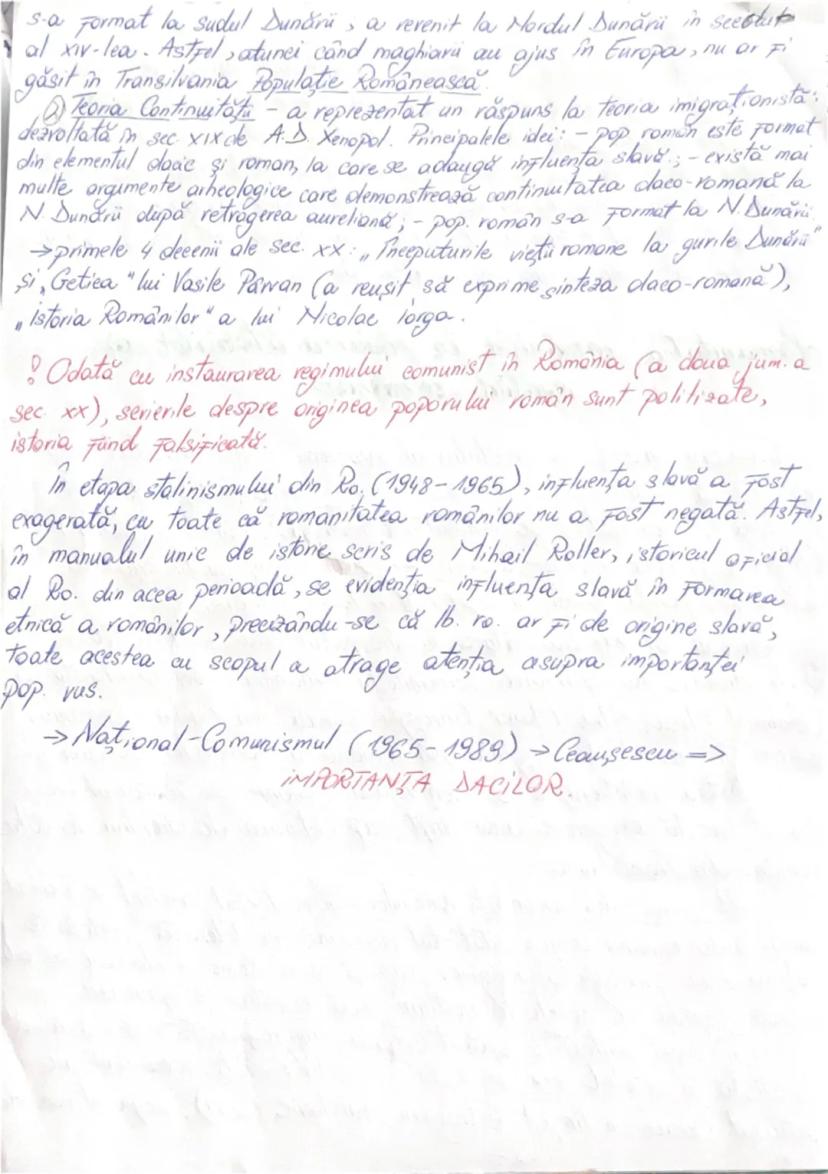 s-a format la sudul Dunării, a revenit la Nordul Dunării în secolul
al XIV-lea. Astfel, atunci când maghiarii au ajus în Europa, nu ar fi
găsit în Transilvania Populație Românească.
② Teoria Continuității - a reprezentat un răspuns la teoria imigraționistă:
dezvoltată în sec XIX de A.D. Xenopol. Principalele idei: - pop român este format
din elementul dacic și roman, la care se adaugă influența slavă; - există mai
multe argumente arheologice care demonstrează continuitatea daco-romană la
N. Dunării după retragerea aureliană; - pop. român s-a format la N. Dunării.
→ primele 4 decenii ale sec. XX: „Începuturile vieții romane la gurile Dunării"
și „Getica" lui Vasile Pârvan (a reușit să exprime sinteza daco-romană),
„Istoria Românilor" a lui Nicolae Iorga.
! Odată cu instaurarea regimului comunist în România (a doua jum. a
sec. XX), scrierile despre originea poporului român sunt politizate,
istoria fiind falsificată.
În etapa stalinismului din Ro. (1948-1965), influența slavă a fost
exagerată, cu toate că romanitatea românilor nu a fost negată. Astfel,
în manualul unic de istorie scris de Mihail Roller, istoricul oficial
al Ro. din acea perioadă, se evidenția influența slavă în formarea
etnică a românilor, precizându-se că lb. ro. ar fi de origine slavă,
toate acestea cu scopul a atrage atenția asupra importanței
pop. rus.
→ Național-Comunismul (1965-1989) → Ceaușescu =>
IMPORTANȚA DACILOR.